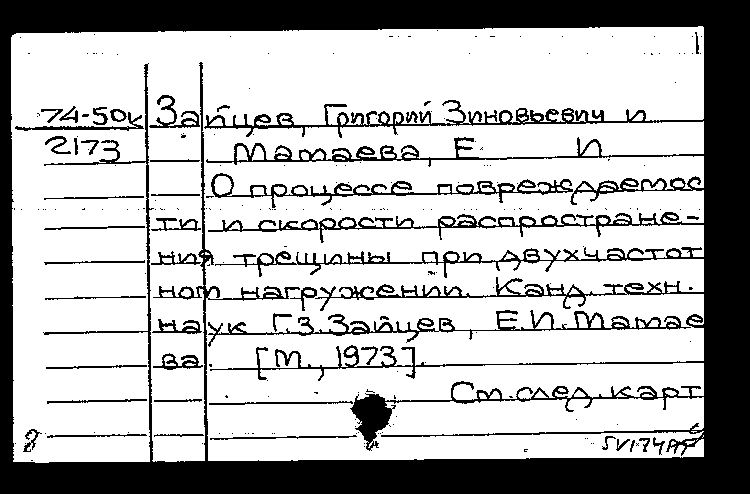 74-50к Зайцев, Григорий Зиновьевич и
2173 Матаева, Е. И.
О процессе повреждаемос
ти и скорости распростране-
ния трещины при двухчастот
ном нагружении. Канд. техн.
наук Г.З.Зайцев, Е.И.Матае
ва. [М., 1973].
См.след.карт
8